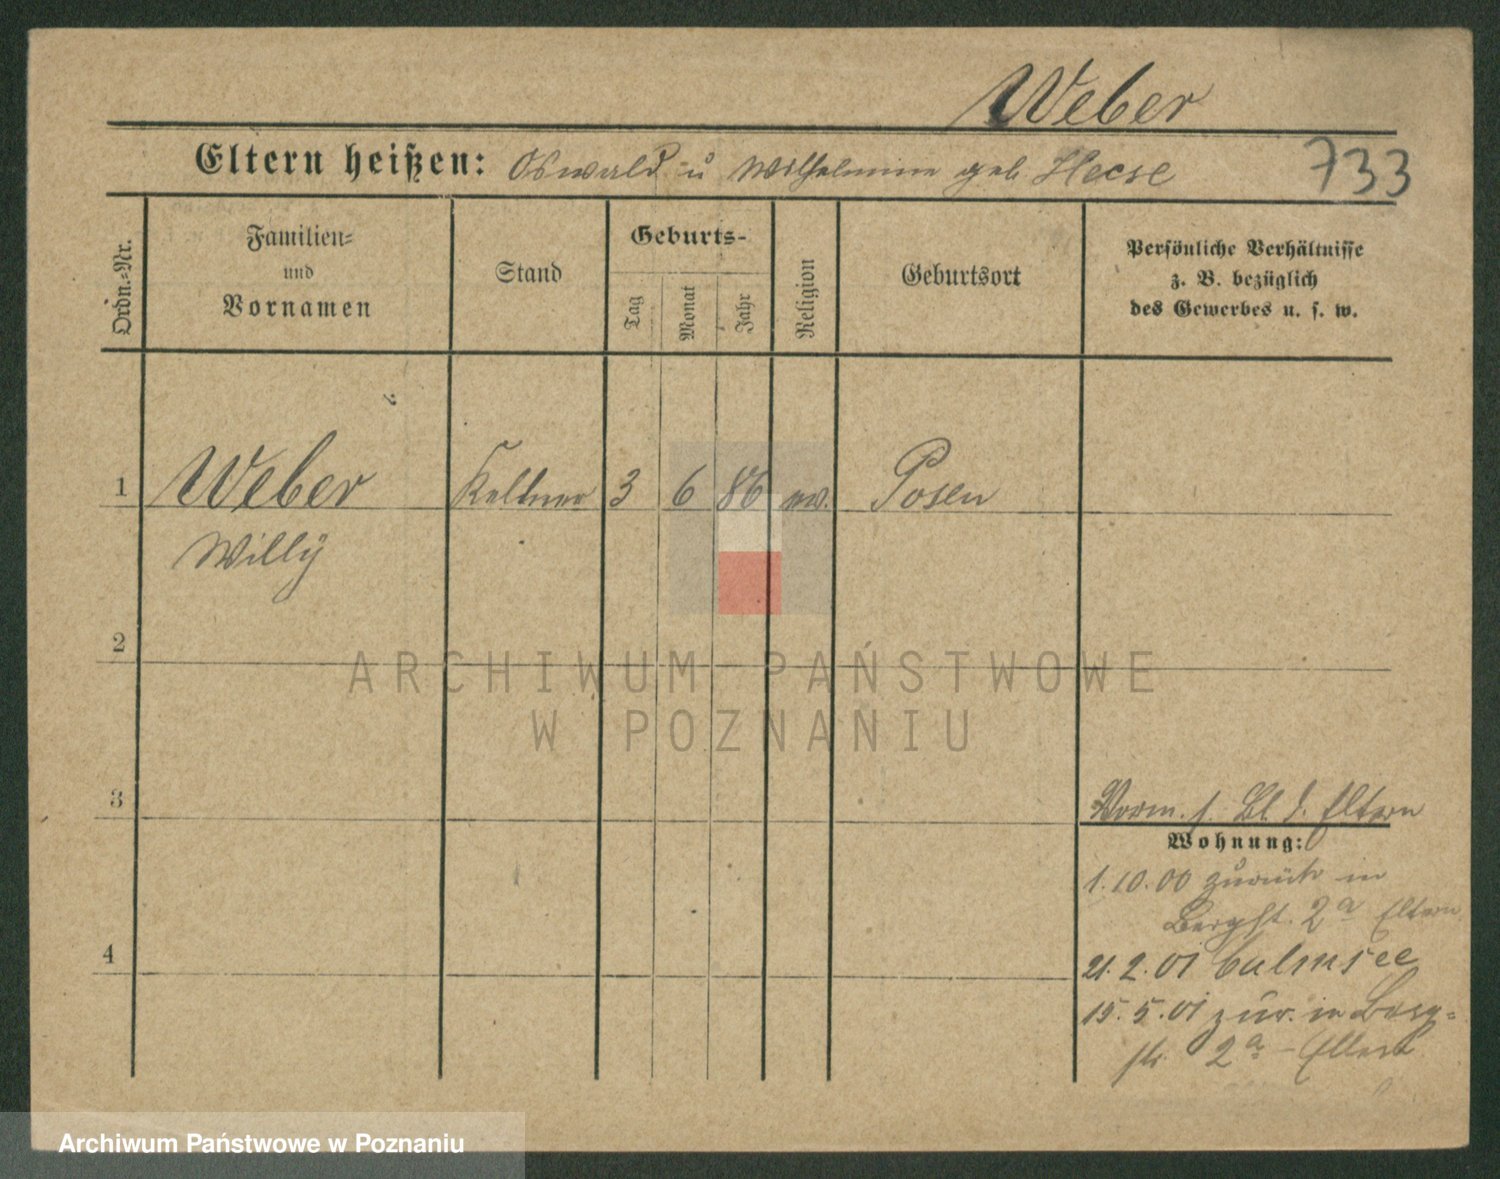 Weber
Eltern heißen: Oswald u Wilhelmine geb. 733
Ordn.-Nr.
Familien-
und
Vornamen
Stand
Geburts-
Tag
Monat
Jahr
Religion
Geburtsort
Persönliche Verhältnisse
z. B. bezüglich
des Gewerbes u. s. w.
1 Weber Kellner 3 6 86 ev. Posen
Willy
2
ARCHIWUM PAŃSTWOWE
W POZNANIU
3
Vorm. s. Bl. d. Eltern
Wohnung:
1.10.00 zurück in
Bergst. 2a Eltern
4
21.2.01 Culmsee
15.5.01 zur. in Berg-
str. 2a
Archiwum Państwowe w Poznaniu